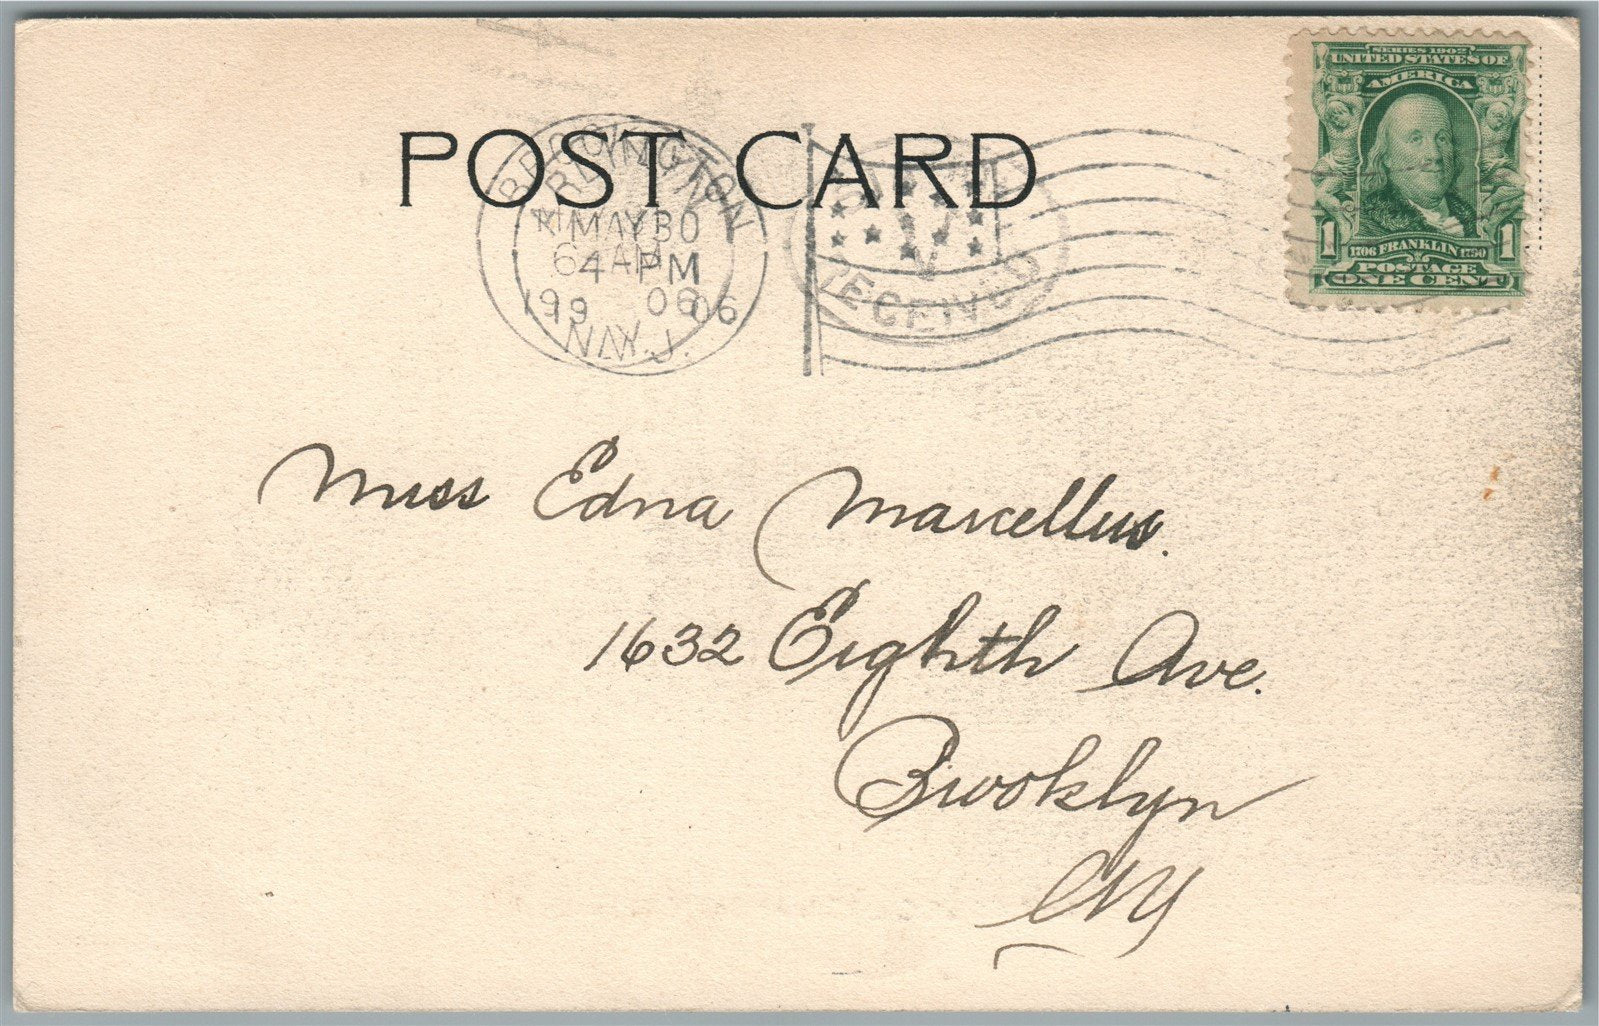 SERIES 1902
UNITED STATES OF
AMERICA
1 1706 FRANKLIN 1790 1
POSTAGE
ONE CENT
POST CARD
MAY 30
6 AM
4 PM
1906
N.J.
RECEIVED
Miss Edna Marcellus.
1632 Eighth Ave.
Brooklyn
NY